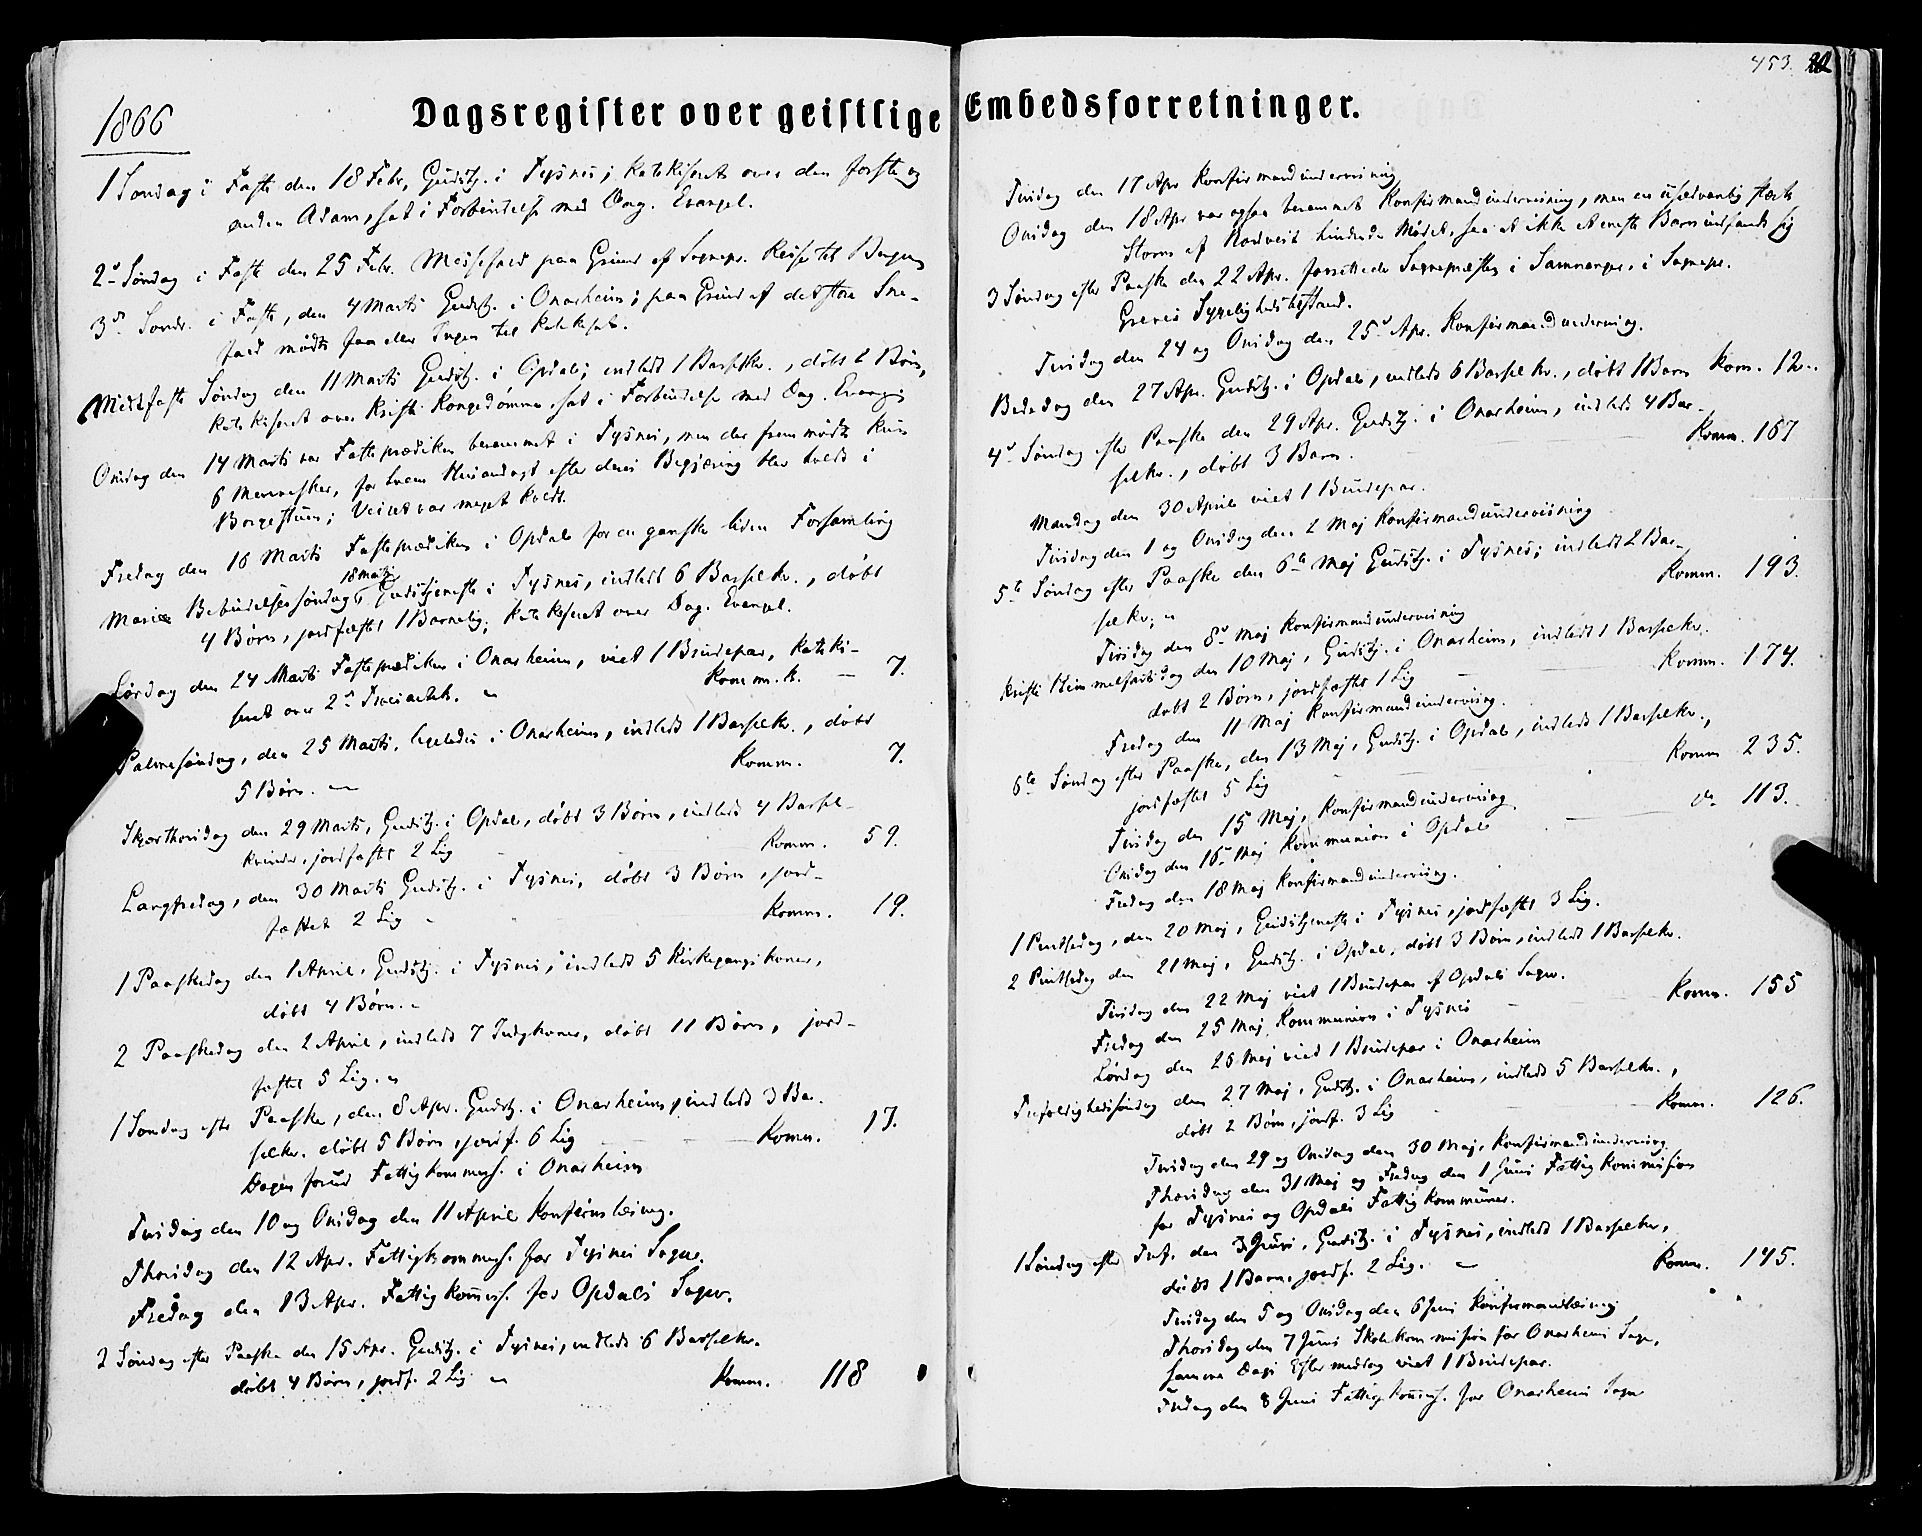 453. 22
Dagsregister over geistlige Embedsforretninger.
1866
1 Søndag i Faste den 18 Febr, Gudstj. i Tysnes; katekiseret over den første og
anden Adam, sat i Forbindelse med Dag. Evangel.
2d Søndag i Faste den 25 Febr. Messefald paa Grund af Sognepr. Reise til Bergen
3de Sønd. i Faste, den 4 Marts Gudstj. i Onarheim; paa Grund af det store Sne-
fald mødte faa eller Ingen til Katekisat.
Midtfaste Søndag den 11 Marts Gudstj. i Opdal; indledt 1 Barselkv., døbt 2 Børn,
katekiseret over Kristi Kongedømme sat i Forbindelse med Dag. Evang.
Onsdag den 14 Marts var Fasteprædiken berammet i Tysnes, men der frem mødte kun
6 Mennesker, for hvem Husandagt efter deres Begjæring blev holdt i
Borgestuen; Veiret var meget koldt.
Fredag den 16 Marts Fasteprædiken i Opdal for en ganske liden Forsamling
18 Marts
Mariæ Bebudelses søndag Gudstjeneste i Tysnes, indledt 6 Barselkv., døbt
4 Børn, jordfæstet 1 Barnelig; katekiseret over Dag. Evangel.
Lørdag den 24 Marts Fasteprædiken i Onarheim, viet 1 Brudepar, kateki-
seret over 2d Troesartikel. Komm. 7.
Palmesøndag, den 25 Marts, ligeledes i Onarheim, indledt 1 Barselkv., døbt
5 Børn. Komm. 7.
Skjærthorsdag den 29 Marts, Gudstj. i Opdal, døbt 3 Børn, indledt 4 Barsel-
kvinder, jordfæstet 2 Lig Komm. 59.
Langfredag, den 30 Marts Gudstj. i Tysnes, døbt 3 Børn, jord-
fæstet 2 Lig Komm. 19.
1 Paaskedag den 1 April, Gudstj. i Tysnes, indledt 5 Kirkegangskoner,
døbt 4 Børn.
2 Paaskedag den 2 April, indledt 7 koner, døbt 11 Børn, jord-
fæstet 5 Lig.
1 Søndag efter Paaske, den 8 Apr. Gudstj. i Onarheim, indledt 3 Bar-
selkv. døbt 5 Børn, jordf. 6 Lig Komm. 17.
Dagen forud Fattigkommiss. i Onarheim
Tirsdag den 10 og Onsdag den 11 April Konfirmlæsning.
Thorsdag den 12 Apr. Fattigkommiss. for Tysnes Sogn.
Fredag den 13 Apr. Fattigkommiss. for Opdals Sogn.
2 Søndag efter Paaske den 15 Apr. Gudstj. i Tysnes, indledt 6 Barselkv.
døbt 4 Børn, jordf. 2 Lig Komm. 118
Tirsdag den 17 Apr Konfirmandundervisning
Onsdag den 18 Apr var ogsaa berammet Konfirmandundervisning, men en usædvanlig stærk
Storm af Nordvest hindrede Mødet, saa at ikke et eneste Barn indfandt sig
3 Søndag efter Paaske den 22 Apr. forrettede Sognepræsten i Samnanger, i Sognepr.
Greves Sygelighedstilstand.
Tirsdag den 24 og Onsdag den 25d Apr. Konfirmandundervisning.
Bededag den 27 Apr. Gudstj. i Opdal, indledt 6 Barselkv., døbt 1 Barn Kom. 12.
4d Søndag efter Paaske den 29 Apr. Gudstj. i Onarheim, indledt 4 Bar-
selkv., døbt 3 Børn. Komm. 167
Mandag den 30 April viet 1 Brudepar.
Tirsdag den 1 og Onsdag den 2 Maj Konfirmandundervisning
5te Søndag efter Paaske den 6te Maj Gudstj. i Tysnes; indledt 2 Bar-
selkv. Komm. 193.
Tirsdag den 8d Maj Konfirmandundervisning
Kristi Himmelfartsdag den 10 Maj, Gudstj. i Onarheim, indledt 1 Barselkv.
døbt 2 Børn, jordfæstet 1 Lig Komm. 174.
Fredag den 11 Maj Konfirmandundervisning.
6te Søndag efter Paaske, den 13 Maj, Gudstj. i Opdal, indledt 1 Barselkv.,
jordfæstet 5 Lig Komm 235.
Tirsdag den 15 Maj, Konfirmandundervisning
Onsdag den 16d Maj Kommunion i Opdal do 113.
Fredag den 18 Maj Konfirmandundervisning.
1 Pintsedag, den 20 Maj, Gudstjeneste i Tysnes, jordfæstet 3 Lig.
2 Pintsedag den 21 Maj, Gudstj. i Opdal, døbt 3 Børn, indledt 1 Barselkv.
Tirsdag den 22 Maj viet 1 Brudepar af Opdals Sogn.
Fredag den 25 Maj Kommunion i Tysnes Komm. 155
Lørdag den 26 Maj viet 1 Brudepar i Onarheim
Trefoldighedssøndag den 27 Maj, Gudstj. i Onarheim, indledt 5 Barselkv.,
døbt 2 Børn, jordf. 3 Lig Komm. 126.
Tirsdag den 29 og Onsdag den 30 Maj, Konfirmandundervisning
Thorsdag den 31 Maj og Fredag den 1 Juni Fattigkommission
for Tysnes og Opdals Fattigkommuner.
1 Søndag efter Tref. den 3 Juni, Gudstj. i Tysnes, indledt 1 Barselkv,
døbt 1 Barn, jordf. 2 Lig. Komm. 145.
Tirsdag den 5 og Onsdag den 6 Juni Konfirmandlæsning
Thorsdag den 7 Juni Skolekommission for Onarheims Sogn,
samme Dags Eftermiddag viet 1 Brudepar.
Fredag den 8 Juni Fattigkommiss. for Onarheims Sogn